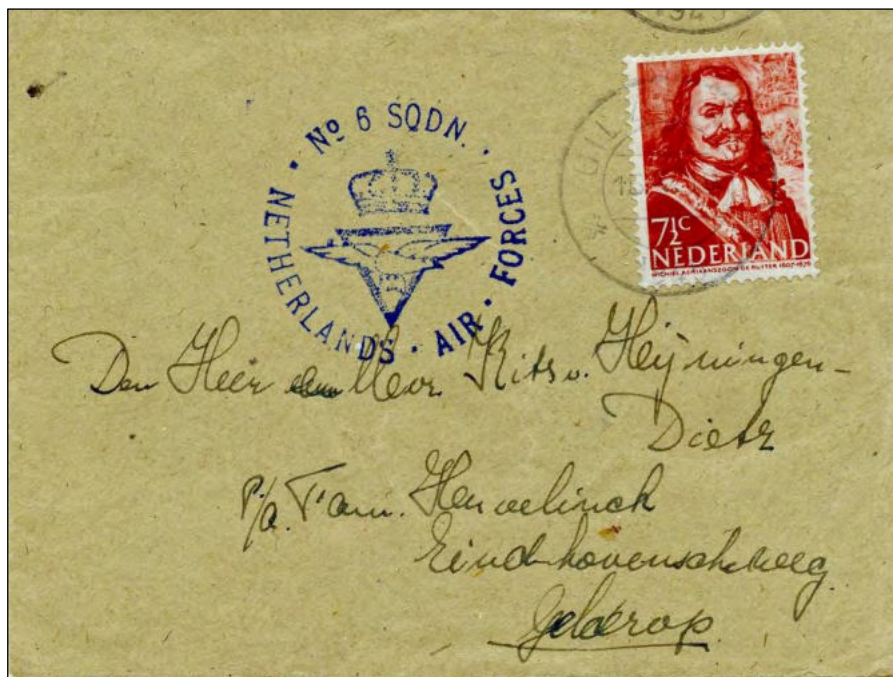 1945
Nº 6 SQDN. · NETHERLANDS · AIR · FORCES
7½C
NEDERLAND
MICHIEL ADRIAANSZOON DE RUYTER 1607-1676
GIL
Den Heer en Mevr. Kits v. Heijningen-
Dietz
P/a. Fam. Heuvelinck
Eindhovenscheweg
Geldrop